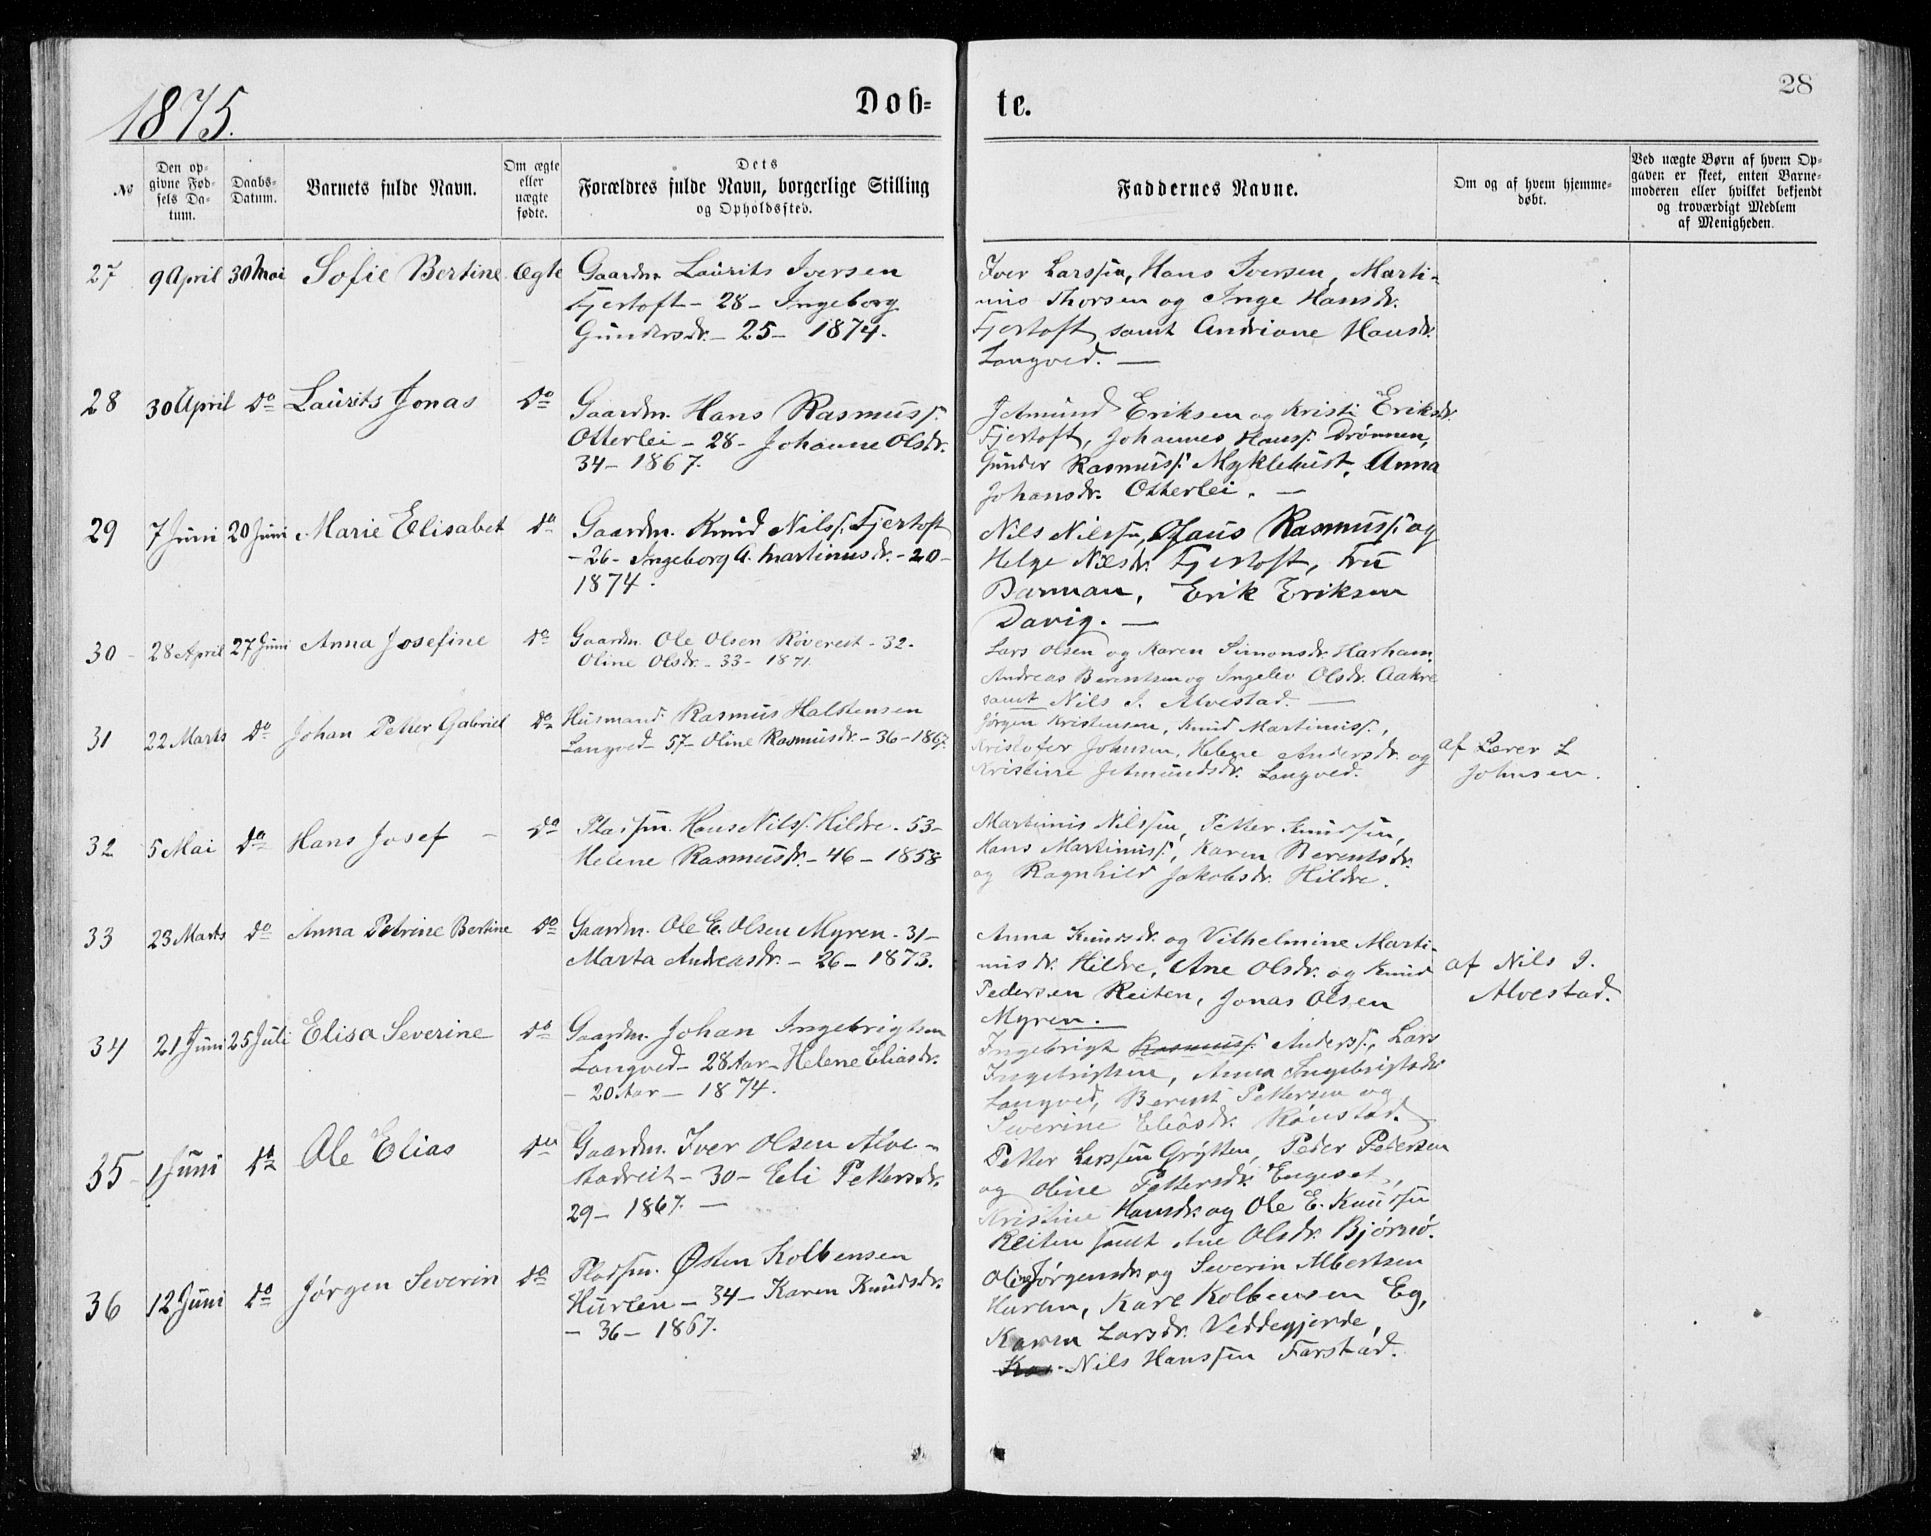 1875.
Døb-
te.
28
No
Den op-
givne Fød-
sels Da-
tum.
Daabs-
Datum.
Barnets fulde Navn.
Om ægte
eller
uægte
fødte.
Dets
Forældres fulde Navn, borgerlige Stilling
og Opholdssted.
Faddernes Navne.
Om og af hvem hjemme-
døbt.
Ved uægte Børn af hvem Op-
gaven er skeet, enten Barne-
moderen eller hvilket bekjendt
og troværdigt Medlem
af Menigheden.
27 9 April 30 Mai Sofie Bertine Ægte
Gaardm. Laurits Iversen
Fjertoft - 28 - Ingeborg
Gundersdr. - 25 - 1874.
Iver Larssen, Hans Iversen, Marti-
nus Thorsen og Inge Hansdr.
Fjertoft samt Andriane Hansdr.
Longved. —
28 30 April do Laurits Jonas do
Gaardm. Hans Rasmuss.
Otterlei - 28 - Johanne Olsdr.
34 - 1867.
Jetmund Eriksen og Kristi Eriksdr.
Fjertoft, Johannes Hanss. Drønnen,
Gunder Rasmuss. Myklebust, Anna
Johansdr. Otterlei. —
29 7 Juni 20 Juni Marie Elisabet do
Gaardm. Knud Nilss. Fjertoft
- 26 - Ingeborg A. Martinusdr. - 20 -
1874.
Nils Nilssen, Claus Rasmuss. og
Helge Nilsdr. Fjertoft, Fru
Darman, Erik Eriksen
Davig. —
30 - 28 April 27 Juni Anna Josefine do
Gaardm. Ole Olsen Røverest - 32 -
Oline Olsdr. - 33 - 1871.
Lars Olsen og Karen Simonsdr. Harham,
Andreas Berentsen og Ingelev Olsdr. Aakre
samt Nils J. Alvestad. —
31 22 Marts do Johan Petter Gabriel do
Husmand Rasmus Halstensen
Longved - 57 - Oline Rasmusdr. - 36 - 1867.
Jørgen Kristensen, Knud Martinuss.,
Kristofer Johnsen, Helene Andersdr. og
Kristine Jetmundsdr. Longved.
af Lærer L
Johnsen.
32 5 Mai do Hans Josef - do
Pladsm. Hans Nilss. Hildre - 53 -
Helene Rasmusdr. - 46 - 1858
Martinus Nilssen, Petter Knudsen,
Hans Martinuss., Karen Berentsdr.
og Ragnhild Jakobsdr. Hildre.
33 23 Marts do Anna Petrine Bertine do
Gaardm. Ole E. Olsen Myren - 31 -
Marta Andreasdr. - 26 - 1873.
Anna Knudsdr. og Vilhelmine Marti-
nusdr. Hildre, Ane Olsdr. og Knud
Pedersen Reiten, Jonas Olsen
Myren.
af Nils J.
Alvestad.
34 21 Juni 25 Juli Elisa Severine do
Gaardm. Johan Ingebrigtsen
Longved - 28 Aar - Helene Eliasdr.
- 20 Aar - 1874.
Ingebrigt Rasmuss. Anderss., Lars
Ingebrigtsen, Anna Ingebrigtsdr.
Longved, Berent Pettersen og
Severine Eliasdr. Rønstad.
35 - 1 Juni do Ole Elias do
Gaardm. Iver Olsen Alve-
stadreit - 30 - Eli Pettersdr.
29 - 1867. —
Petter Larssen Grytten, Peder Petersen
og Oline Pettersdr. Engeset,
Kristine Hansdr. og Ole E. Knudsen
Reiten samt Ane Olsdr. Bjørnø.
36 12 Juni do Jørgen Severin do
Pladsm. Østen Kolbensen
Hurlen - 34 - Karen Knudsdr.
- 36 - 1867.
Oline Jørgensdr. og Severin Albertsen
Hurlen, Karl Kolbensen Eg,
Karen Larsdr. Veddegjerde,
Nils Hanssen Farstad.